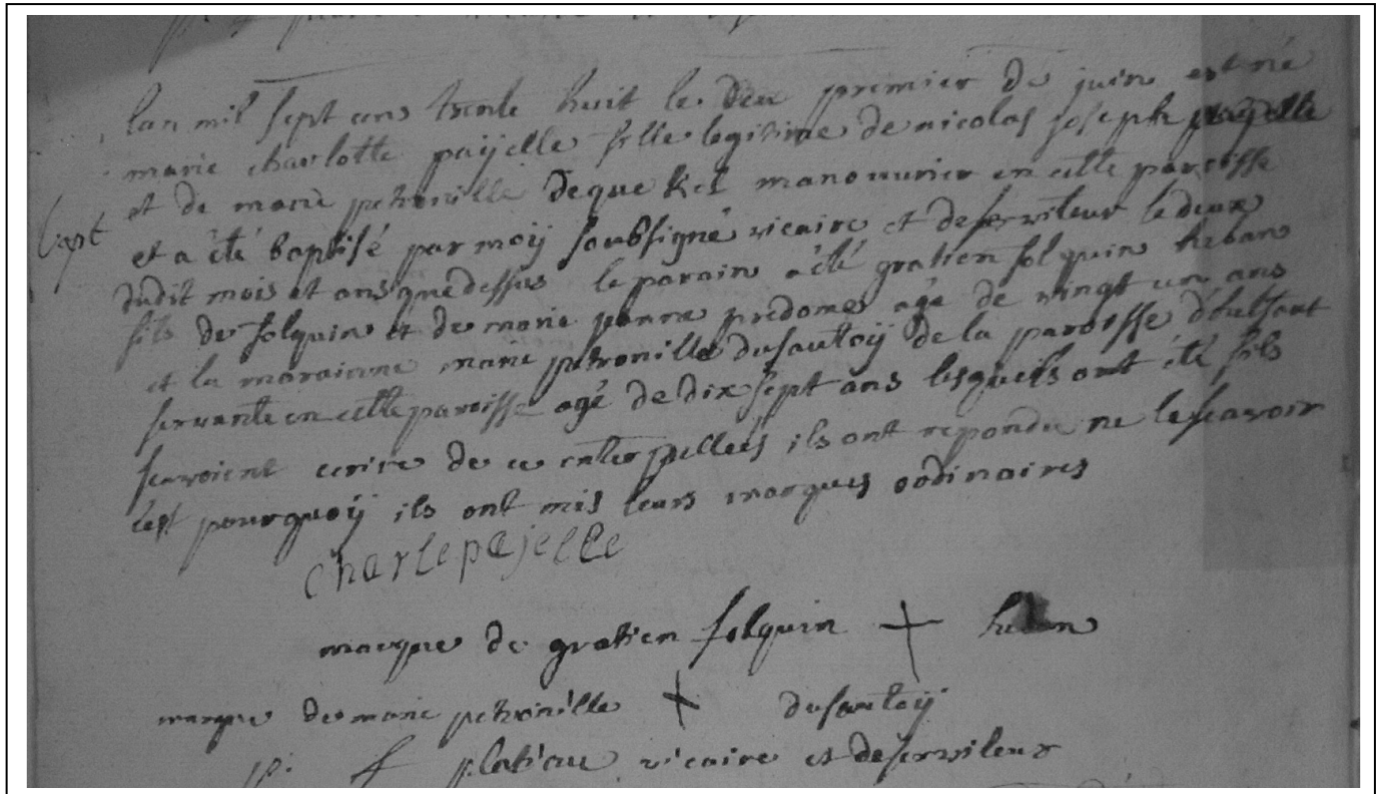 lan mil sept cens trente huit le premier de juin est né
marie charlotte paÿelle fille legitime de nicolas joseph paÿelle
et de marie petronille dequekel manouvrier en cette paroisse
Bapt
et a été baptisé par moÿ soubsigné vicaire et deserviteur le deux
dudit mois et ans que dessus le parain a été gratien folquin heban
fils de folquin et de marie jenne predome agé de vingt un ans
et la maraienne marie petronille dusautoÿ de la paroisse
servante en cette paroisse agé de dix sept ans lesquels ont été sils
scavoient ecrire de ce interpellees ils ont repondu ne le scavoir
cest pourquoÿ ils ont mis leurs marques ordinaires
charlepajelle
marque de gratien folquin heban
marque de marie petronille dusautoÿ
platiau vicaire et deserviteur